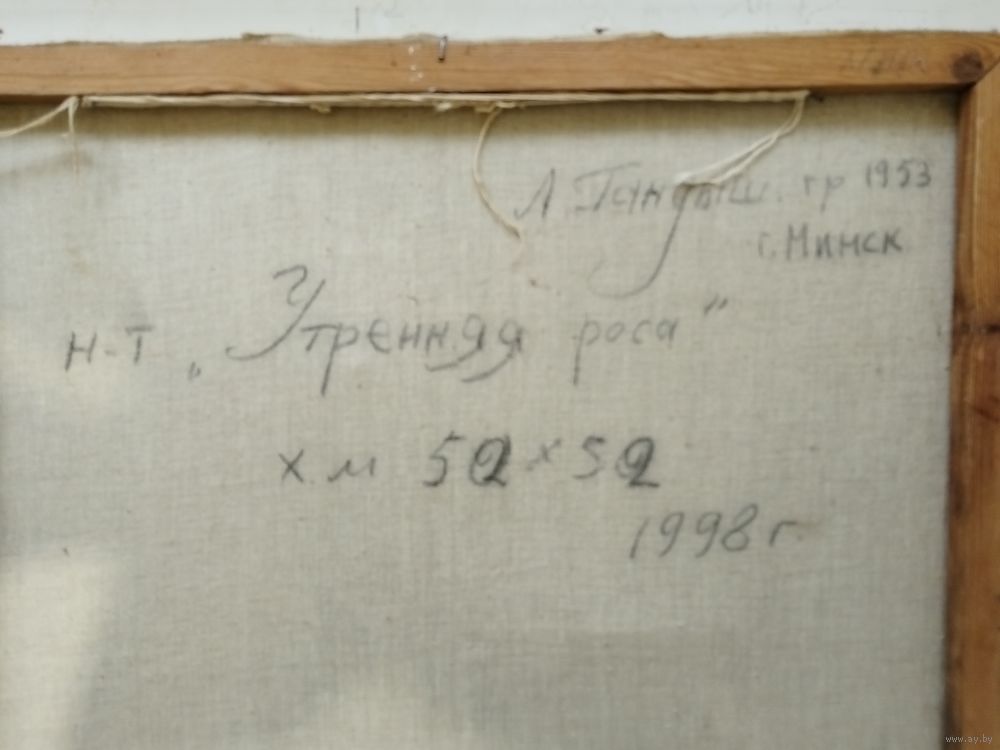 Л. гр 1953
г. Минск
н-т „Утренняя роса"
х м 52 х 52
1998 г
www.ay.by